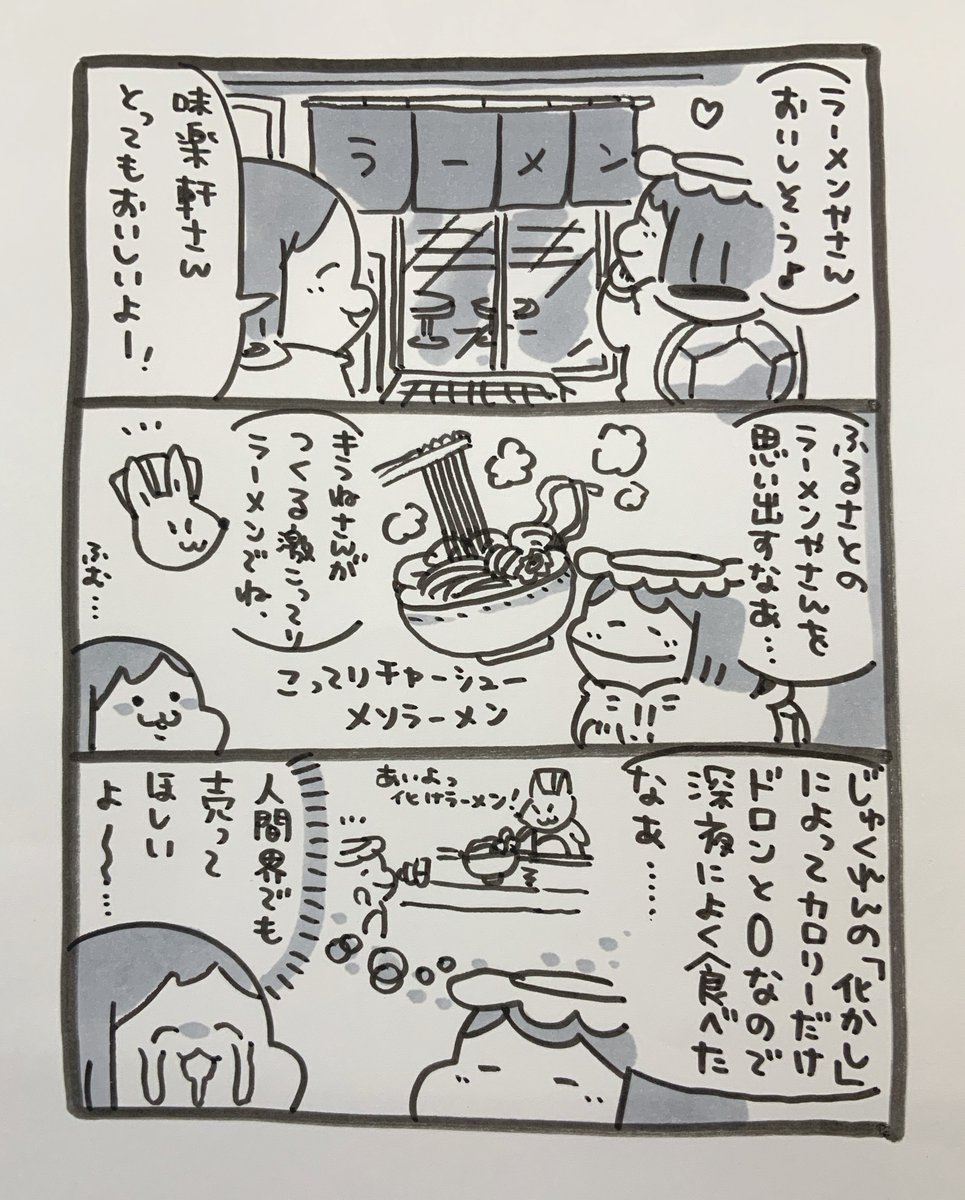 ラーメンやさん
おいしそうよ
ラーメン
味楽軒さん
とってもおいしいよー!
ふるさとの
ラーメンやさんを
思い出すなあ…
きつねさんが
つくる激こってり
ラーメンでね
こってりチャーシュー
メソラーメン
ふむ…
じゅくれんの「化かし」
によってカロリーだけ
ドロンと0なので
深夜によく食べた
なぁ……
あいよっ
化けラーメン!
人間界でも
売って
ほしい
よ〜〜…